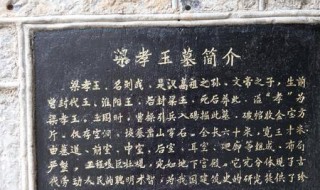 梁孝王墓简介
梁孝王，名刘武，是汉高祖之孙，文帝之子，生前
曾封代王、淮阳王，后封梁王，死后葬此，谥"孝"为
梁孝王。三国时，曹操引兵入砀掘此墓，破棺收金宝万
斤，仅存空洞，
全长六十米，宽三十米，
由墓道、前室、中室、后室、耳室、
等组成，布局
严整，工程
宛如地下宫殿，它充分体现了古
代劳动人民的聪明才智，为我国建筑史的研究提供了珍